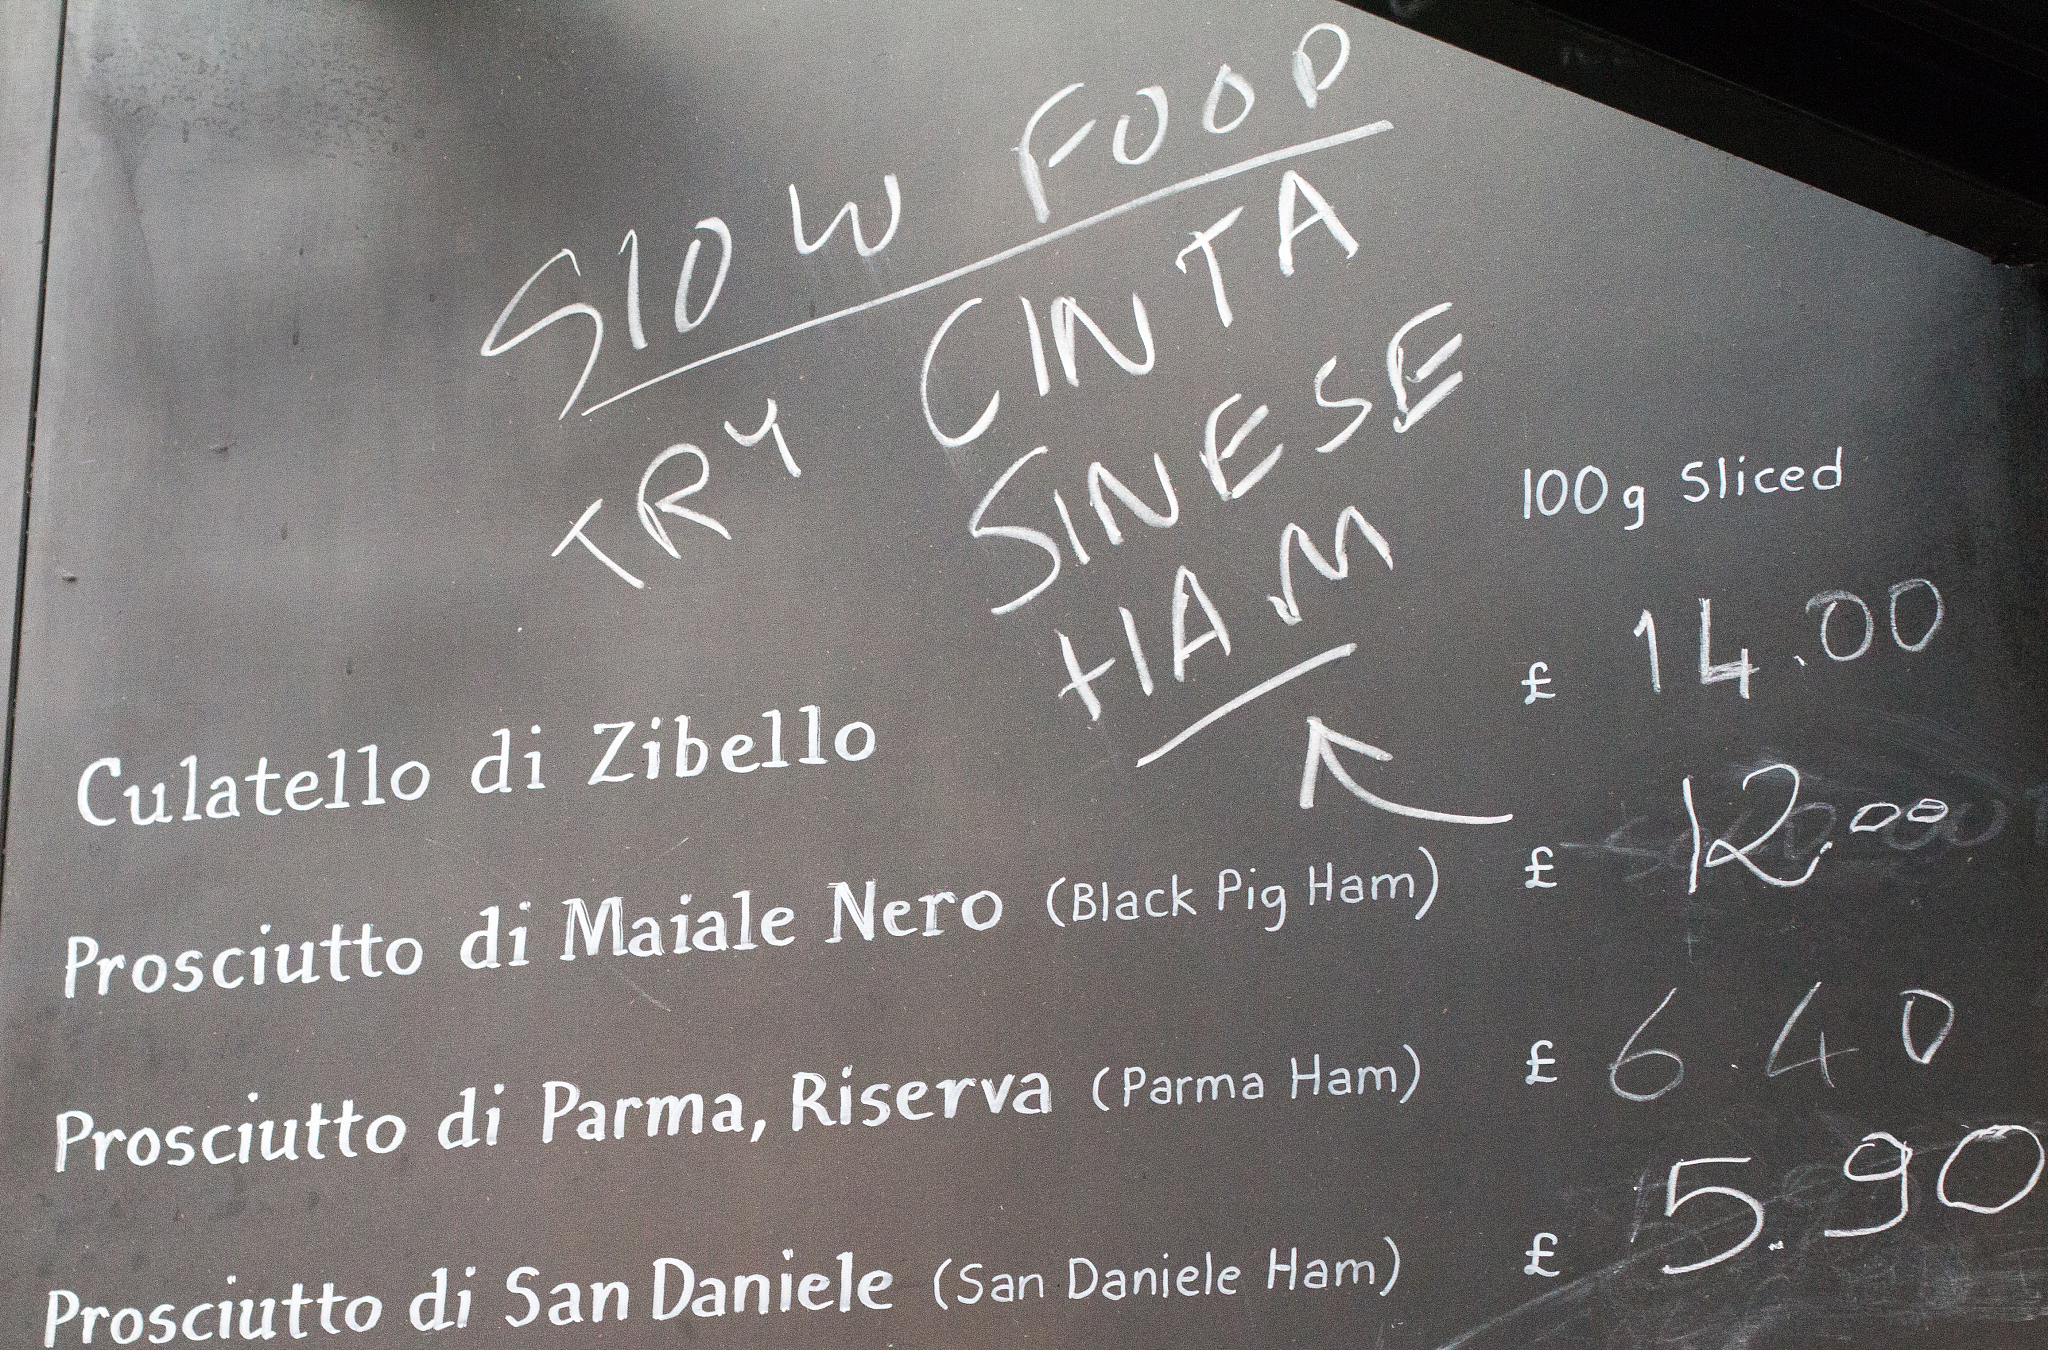 SlOW FOOD
TRY CINTA
SINESE
HAM
100g Sliced
Culatello di Zibello £ 14.00
Prosciutto di Maiale Nero (Black Pig Ham) £ 12.00
Prosciutto di Parma, Riserva (Parma Ham) £ 6.40
Prosciutto di San Daniele (San Daniele Ham) £ 5.90